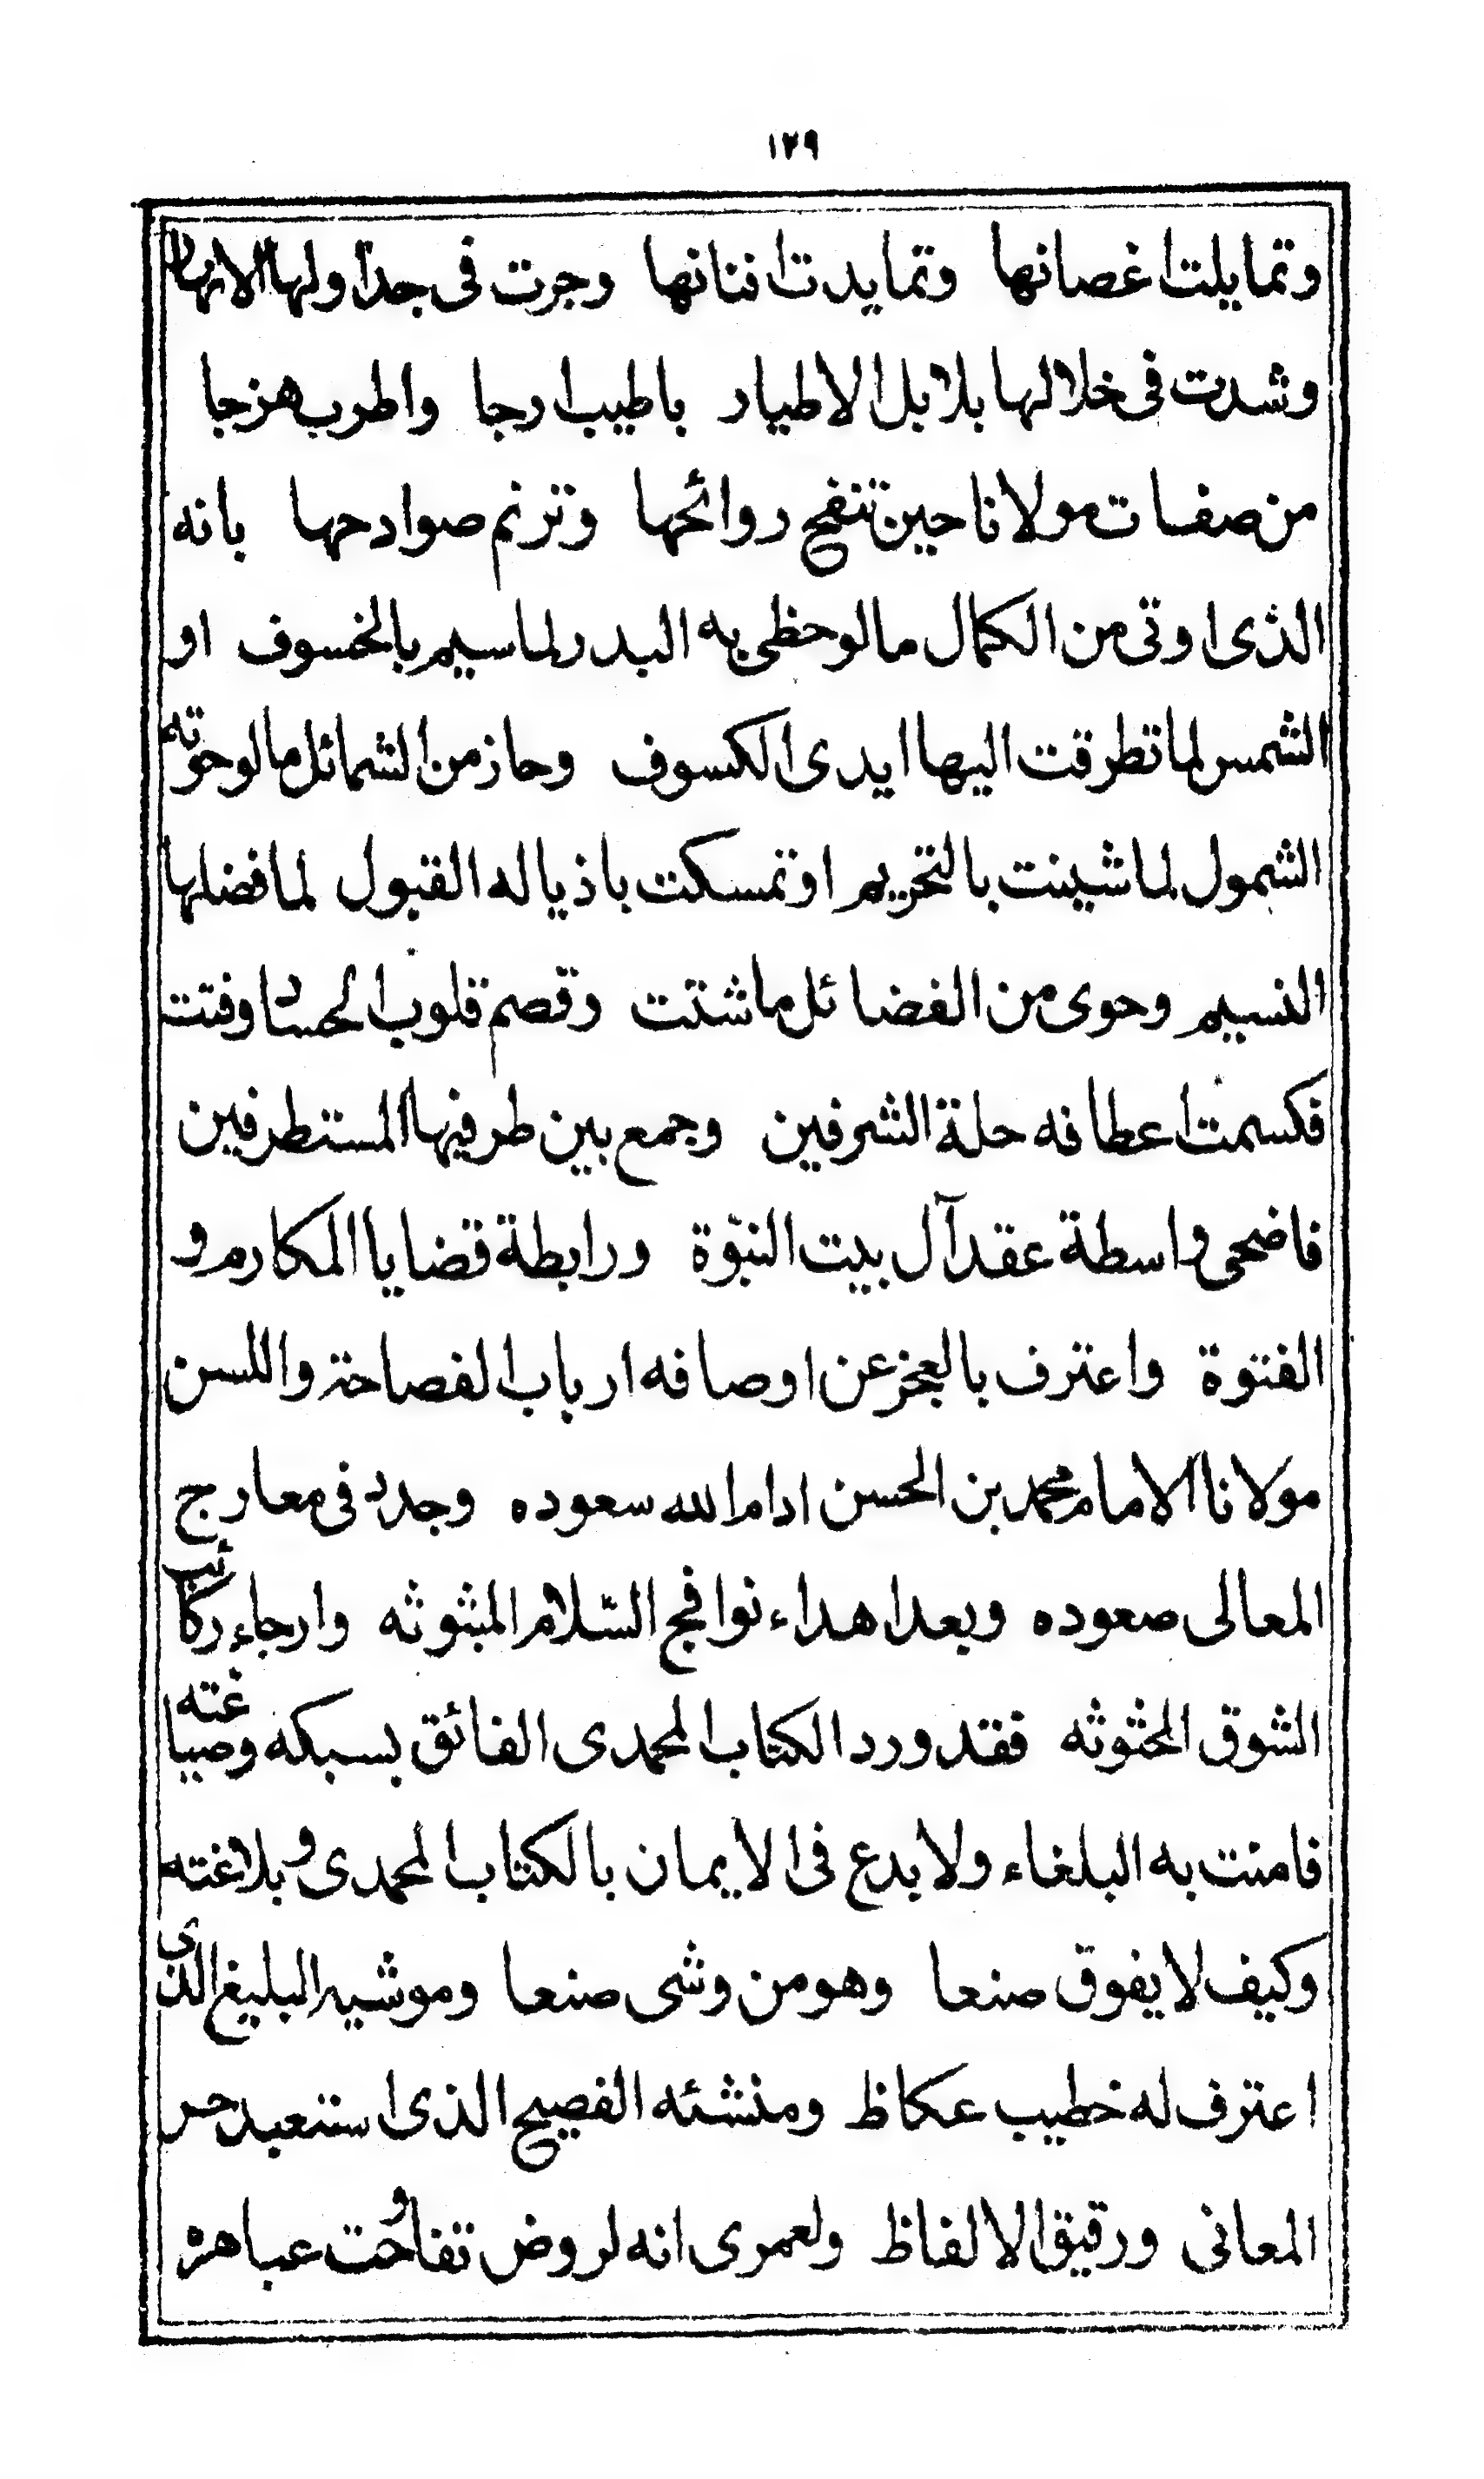 ١٢٩
وتمايلت اغصانها وتمايدت افنانها وجرت فى جداولها الانهار
وشدت فى خلالها بلابل الاطيار باطيب ارجا واطرب هزجا
من صفات مولانا حين تنفح روائحها وترنم صوادحها بانه
الذى اوتى من الكمال مالو حظى به البدر لما سيم بالخسوف او
الشمس لما تطرقت اليها ايدى الكسوف وحاز من الشمائل مالو حوته
الشمول لما شينت بالتحريم او تمسكت باذياله القبول لما فضلها
النسيم وحوى من الفضائل ما شتت وقصم قلوب الحساد وفتت
فكسمت اعطافه حلة الشرفين وجمع بين طرفيها المستطرفين
فاضحى واسطة عقد آل بيت النبّوة ورابطة قضايا المكارم و
الفتوة واعترف بالعجز عن اوصافه ارباب الفصاحة واللسن
مولانا الامام محمد بن الحسن ادام الله سعوده وجدد فى معارج
المعالى صعوده وبعد اهداء نوافج السّلام المبثوثه وارجاء ركائب
الشوق المحثوثه فقد ورد الكتاب المحمدى الفائق بسبكه وصياغته
فامنت به البلغاء ولا بدع فى الايمان بالكتاب المحمدى وبلاغته
وكيف لا يفوق صنعا وهو من وشى صنعا وموشيه البليغ الذى
اعترف له خطيب عكاظ ومنشئه الفصيح الذى استعبد حر
المعانى ورقيق الالفاظ ولعمرى انه لروض تفاوحت عباهره